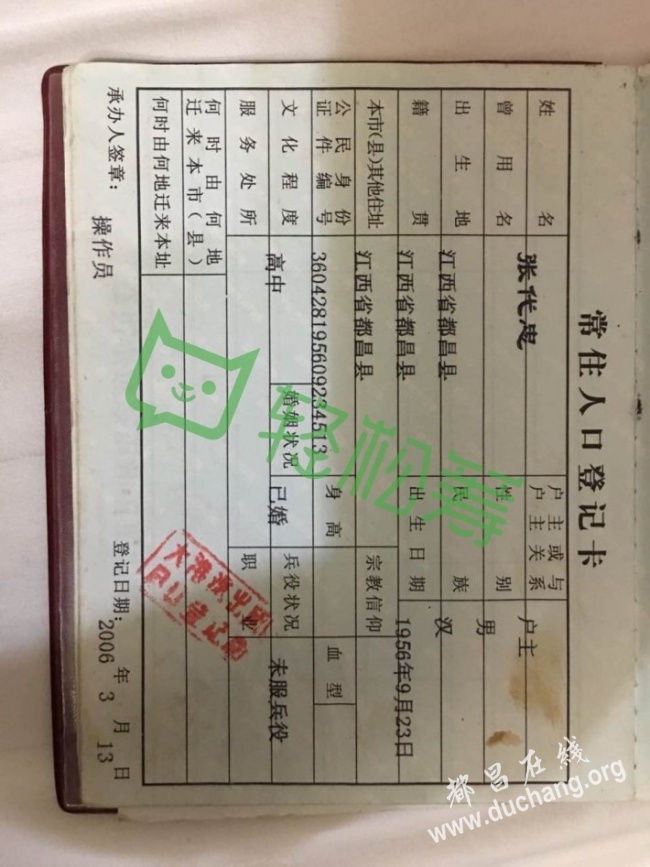 常住人口登记卡
姓名 张代忠 户主或与户主关系 户主
曾用名 性别 男
出生地 江西省都昌县 民族 汉
籍贯 江西省都昌县 出生日期 1956年9月23日
本市(县)其他住址 江西省都昌县 宗教信仰
公民身份证件编号 360428195609234513 身高 血型
文化程度 高中 婚姻状况 已婚 兵役状况 未服兵役
服务处所 职业
何时由何地迁来本市(县)
何时由何地迁来本址
承办人签章: 操作员 登记日期: 2006年3月13日
轻松筹
都昌在线
www.duchang.org